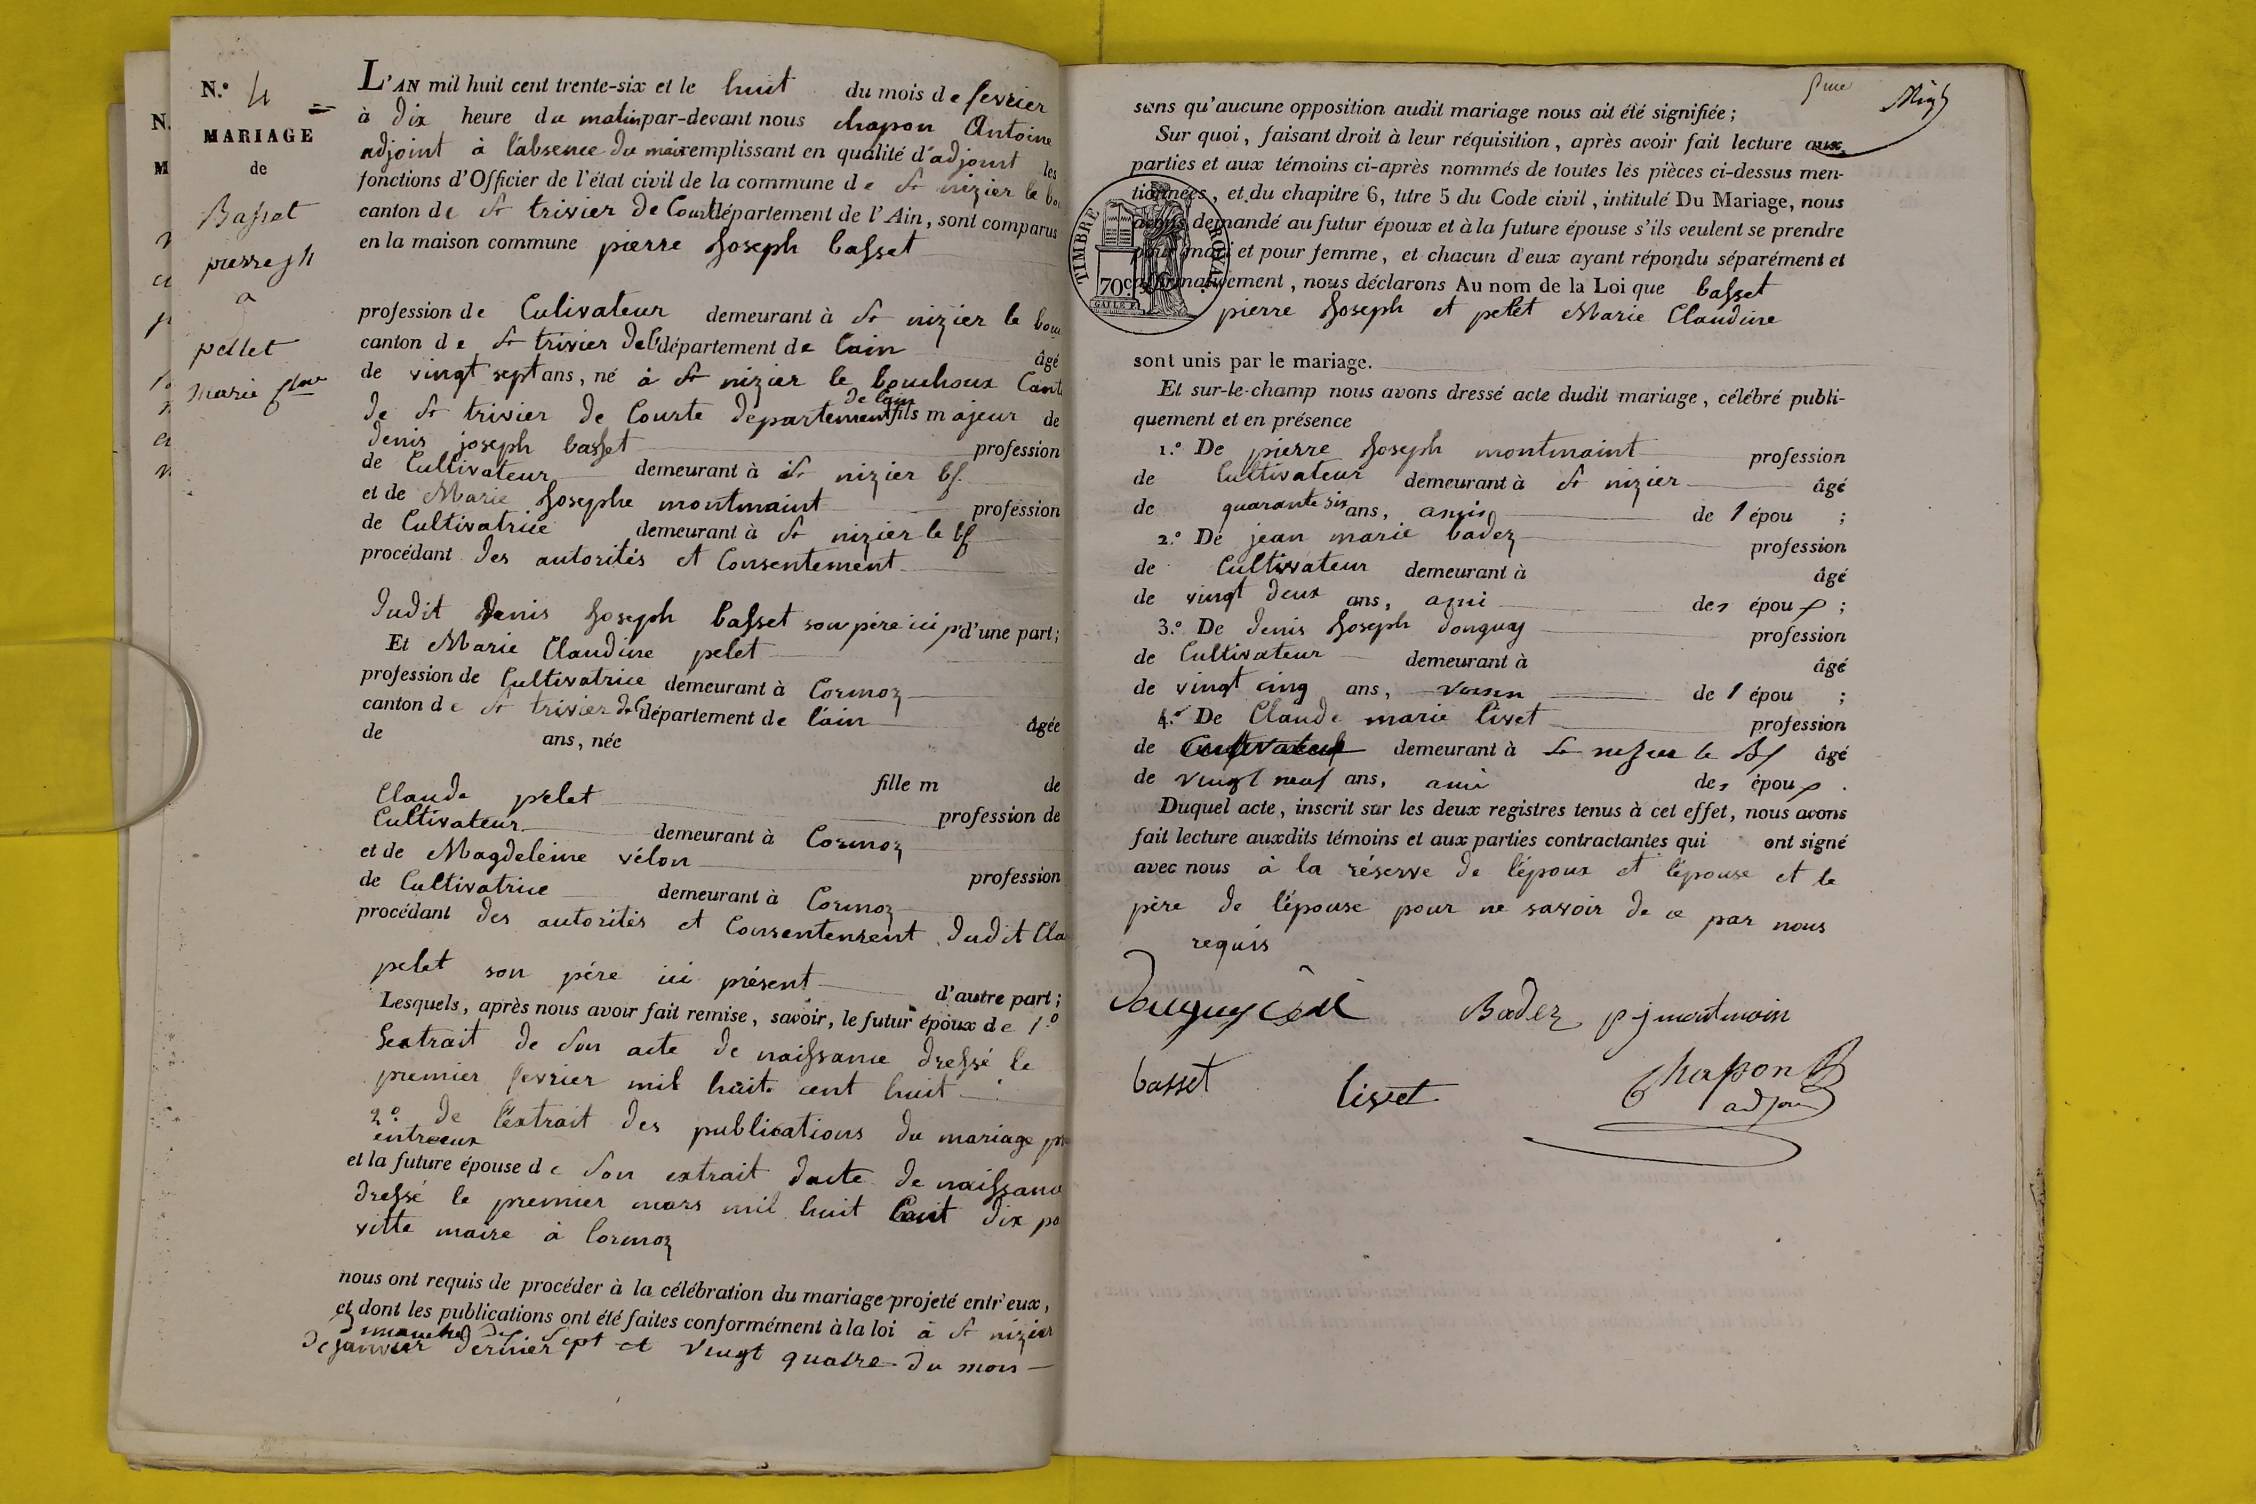 N.° 4
MARIAGE
de
Basset
pierre jh
a
pellet
marie Cl.ne
L'AN mil huit cent trente-six et le huit du mois de fevrier
à dix heure du matin par-devant nous chapon Antoine
adjoint à l'absence du maire remplissant en qualité d'adjoint les
fonctions d'Officier de l'état civil de la commune de St nizier le bou
canton de St trivier de Court département de l'Ain, sont comparus
en la maison commune pierre Joseph basset
profession de Cultivateur demeurant à St nizier le bou
canton de St trivier de C département de lain âgé
de vingt sept ans, né à St nizier le bouchoux Cant
de St trivier de Courte departement de lain fils majeur de
denis joseph basset profession
de Cultivateur demeurant à St nizier bf.
et de Marie Josephe montmaint profession
de Cultivatrice demeurant à St nizier le bf
procédant des autorités et Consentement
dudit denis Joseph basset son père ici p d'une part;
Et Marie Claudine pelet
profession de Cultivatrice demeurant à Cormoz
canton de St trivier de C département de l'ain âgée
de ans, née
fille m de
Claude pelet profession de
Cultivateur demeurant à Cormoz
et de Magdeleine vélon profession
de Cultivatrice demeurant à Cormoz
procédant des autorités et Consentement dudit Cla
pelet son père ici présent d'autre part;
Lesquels, après nous avoir fait remise, savoir, le futur époux de 1.°
Lextrait de Son acte de naissance dressé le
premier fevrier mil huit cent huit
2.° de l'extrait des publications du mariage pr
entreeux
et la future épouse de Son extrait dacte de naissance
dressé le premier mars mil huit Cent dix pa
vitte maire à Cormoz
nous ont requis de procéder à la célébration du mariage projeté entr'eux,
et dont les publications ont été faites conformément à la loi à St nizier
dimanches dix Sept et vingt quatre du mois
de janvier dernier
sans qu'aucune opposition audit mariage nous ait été signifiée;
Sur quoi, faisant droit à leur réquisition, après avoir fait lecture aux
parties et aux témoins ci-après nommés de toutes les pièces ci-dessus men-
tionnées, et du chapitre 6, titre 5 du Code civil, intitulé Du Mariage, nous
avons demandé au futur époux et à la future épouse s'ils veulent se prendre
pour mari et pour femme, et chacun d'eux ayant répondu séparément et
affirmativement, nous déclarons Au nom de la Loi que basset
pierre Joseph et pelet Marie Claudine
TIMBRE ROYAL
70c
GALLE F.
sont unis par le mariage.
Et sur-le-champ nous avons dressé acte dudit mariage, célébré publi-
quement et en présence
1.° De pierre Joseph montmaint profession
de Cultivateur demeurant à St nizier âgé
de quarante six ans, ami de l épou ;
2.° De jean marie badez profession
de Cultivateur demeurant à âgé
de vingt deux ans, ami des époux ;
3.° De denis Joseph donguy profession
de Cultivateur demeurant à âgé
de vingt cinq ans, voisin de l épou ;
4.° De Claude marie livet profession
de Cultivateur demeurant à St nizier le Bf âgé
de vingt neuf ans, ami des époux .
Duquel acte, inscrit sur les deux registres tenus à cet effet, nous avons
fait lecture auxdits témoins et aux parties contractantes qui ont signé
avec nous à la réserve de l'époux et l'épouse et le
père de l'épouse pour ne savoir de ce par nous
requis
Badez pjmontmain
basset livet Chapon
adjoint